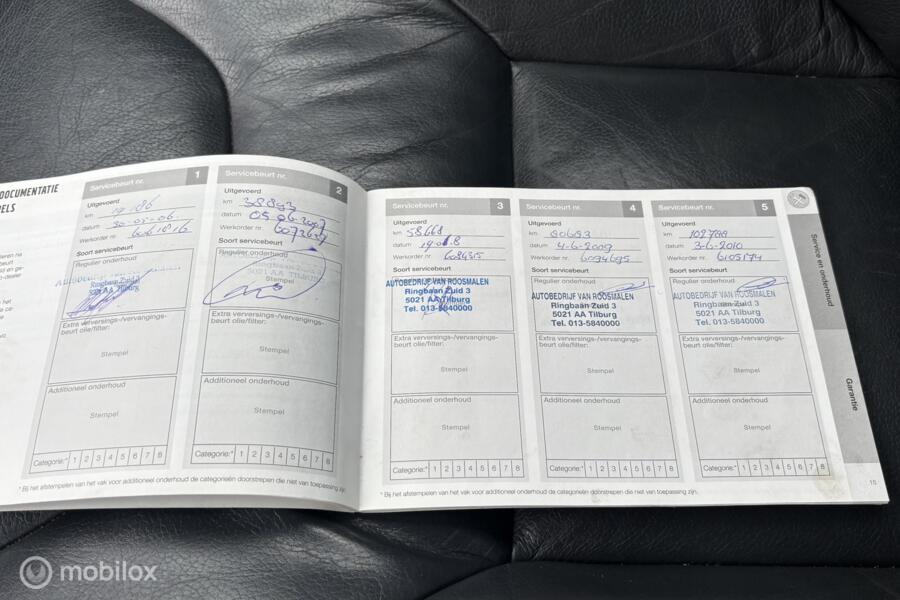 DOCUMENTATIE
PELS
Servicebeurt nr. 1
Uitgevoerd
km 19.186
datum 30-05-06
Werkorder nr. 6061816
Soort servicebeurt
Regulier onderhoud
AUTOBEDRIJF VAN ROOSMALEN
Ringbaan Zuid 3
5021 AA Tilburg
Extra verversings-/vervangings-
beurt olie/filter:
Stempel
Additioneel onderhoud
Stempel
Categorie:* 1 2 3 4 5 6 7 8
Servicebeurt nr. 2
Uitgevoerd
km
datum 05-06-2007
Werkorder nr.
Soort servicebeurt
Regulier onderhoud
Stempel
5021 AA Tilburg
Extra verversings-/vervangings-
beurt olie/filter:
Stempel
Additioneel onderhoud
Stempel
Categorie:* 1 2 3 4 5 6 7 8
* Bij het afstempelen van het vak voor additioneel onderhoud de categorieën doorstrepen die niet van toepassing zijn.
Servicebeurt nr. 3
Uitgevoerd
km 58668
datum
Werkorder nr. 6084315
Soort servicebeurt
Regulier onderhoud
AUTOBEDRIJF VAN ROOSMALEN
Ringbaan Zuid 3
5021 AA Tilburg
Tel. 013-5840000
Extra verversings-/vervangings-
beurt olie/filter:
Stempel
Additioneel onderhoud
Stempel
Categorie:* 1 2 3 4 5 6 7 8
Servicebeurt nr. 4
Uitgevoerd
km 80693
datum 4-6-2009
Werkorder nr. 6094695
Soort servicebeurt
Regulier onderhoud
AUTOBEDRIJF VAN ROOSMALEN
Ringbaan Zuid 3
5021 AA Tilburg
Tel. 013-5840000
Extra verversings-/vervangings-
beurt olie/filter:
Stempel
Additioneel onderhoud
Stempel
Categorie:* 1 2 3 4 5 6 7 8
Servicebeurt nr. 5
Uitgevoerd
km 102788
datum 3-6-2010
Werkorder nr. 6105174
Soort servicebeurt
Regulier onderhoud
AUTOBEDRIJF VAN ROOSMALEN
Ringbaan Zuid 3
5021 AA Tilburg
Tel. 013-5840000
Extra verversings-/vervangings-
beurt olie/filter:
Stempel
Additioneel onderhoud
Stempel
Categorie:* 1 2 3 4 5 6 7 8
* Bij het afstempelen van het vak voor additioneel onderhoud de categorieën doorstrepen die niet van toepassing zijn.
Service en onderhoud
Garantie
15
mobilox